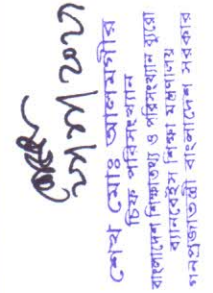 শেখ মোঃ আলমগীর
চিফ পরিসংখ্যান
বাংলাদেশ শিক্ষাতথ্য ও পরিসংখ্যান ব্যুরো
ব্যানবেইস শিক্ষা মন্ত্রণালয়
গনপ্রজাতন্ত্রী বাংলাদেশ সরকার